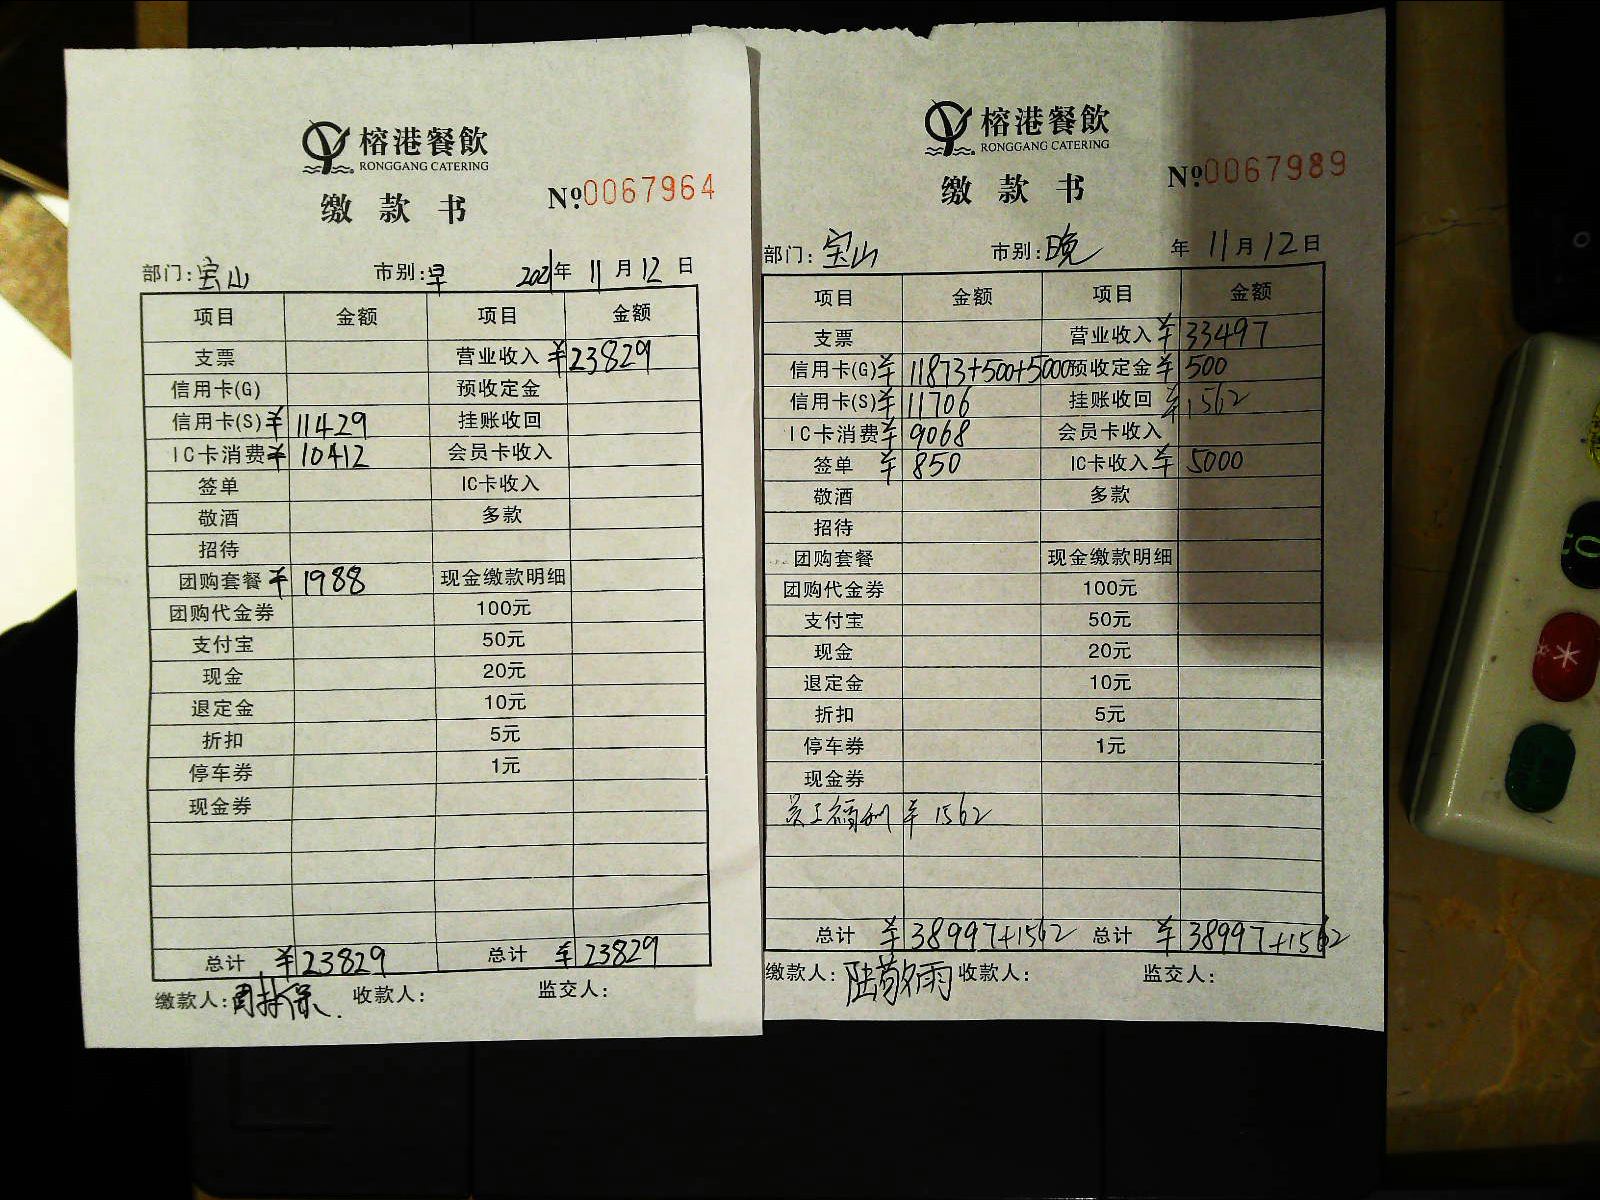 榕港餐飲
RONGGANG CATERING
缴款书
Nº:0067964
部门:宝山 市别:早 2021年 11月12日
项目 金额 项目 金额
支票 营业收入 ¥23829
信用卡(G) 预收定金
信用卡(S) ¥11429 挂账收回
IC卡消费 ¥10412 会员卡收入
签单 IC卡收入
敬酒 多款
招待
团购套餐 ¥1988 现金缴款明细
团购代金券 100元
支付宝 50元
现金 20元
退定金 10元
折扣 5元
停车券 1元
现金券
总计 ¥23829 总计 ¥23829
缴款人: 收款人: 监交人:
榕港餐飲
RONGGANG CATERING
缴款书
Nº:0067989
部门:宝山 市别:晚 年 11月12日
项目 金额 项目 金额
支票 营业收入 ¥33497
信用卡(G) ¥11873+500+5000 预收定金 ¥500
信用卡(S) ¥11706 挂账收回 ¥1562
IC卡消费 ¥9068 会员卡收入
签单 ¥850 IC卡收入 ¥5000
敬酒 多款
招待
团购套餐 现金缴款明细
团购代金券 100元
支付宝 50元
现金 20元
退定金 10元
折扣 5元
停车券 1元
现金券
员工福利 ¥1562
总计 ¥38997+1562 总计 ¥38997+1562
缴款人:陆敬雨 收款人: 监交人: